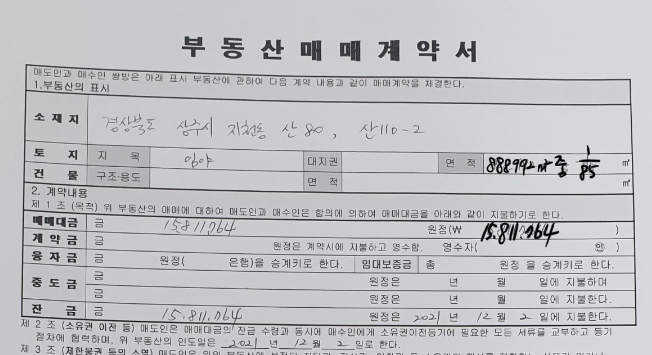 부동산매매계약서
매도인과 매수인 쌍방은 아래 표시 부동산에 관하여 다음 계약 내용과 같이 매매계약을 체결한다.
1.부동산의 표시
소재지 경상북도 상주시 지천동 산80, 산110-2
토지 지목 임야 대지권 면적 888992㎡ 중 1/85 ㎡
건물 구조·용도 면적 ㎡
2. 계약내용
제 1 조 (목적) 위 부동산의 매매에 대하여 매도인과 매수인은 합의에 의하여 매매대금을 아래와 같이 지불하기로 한다.
매매대금 금 15.811.064 원정(₩ 15.811.064 )
계약금 금 원정은 계약시에 지불하고 영수함. 영수자( ㊞ )
융자금 금 원정( 은행)을 승계키로 한다. 임대보증금 총 원정 을 승계키로 한다.
중도금 금 원정은 년 월 일에 지불하며
금 원정은 년 월 일에 지불한다.
잔금 금 15.811.064 원정은 2021 년 12 월 2 일에 지불한다.
제 2 조 (소유권 이전 등) 매도인은 매매대금의 잔금 수령과 동시에 매수인에게 소유권이전등기에 필요한 모든 서류를 교부하고 등기
절차에 협력하며, 위 부동산의 인도일은 2021 년 12 월 2 일로 한다.
제 3 조 (제한물권 등의 소멸) 매도인은